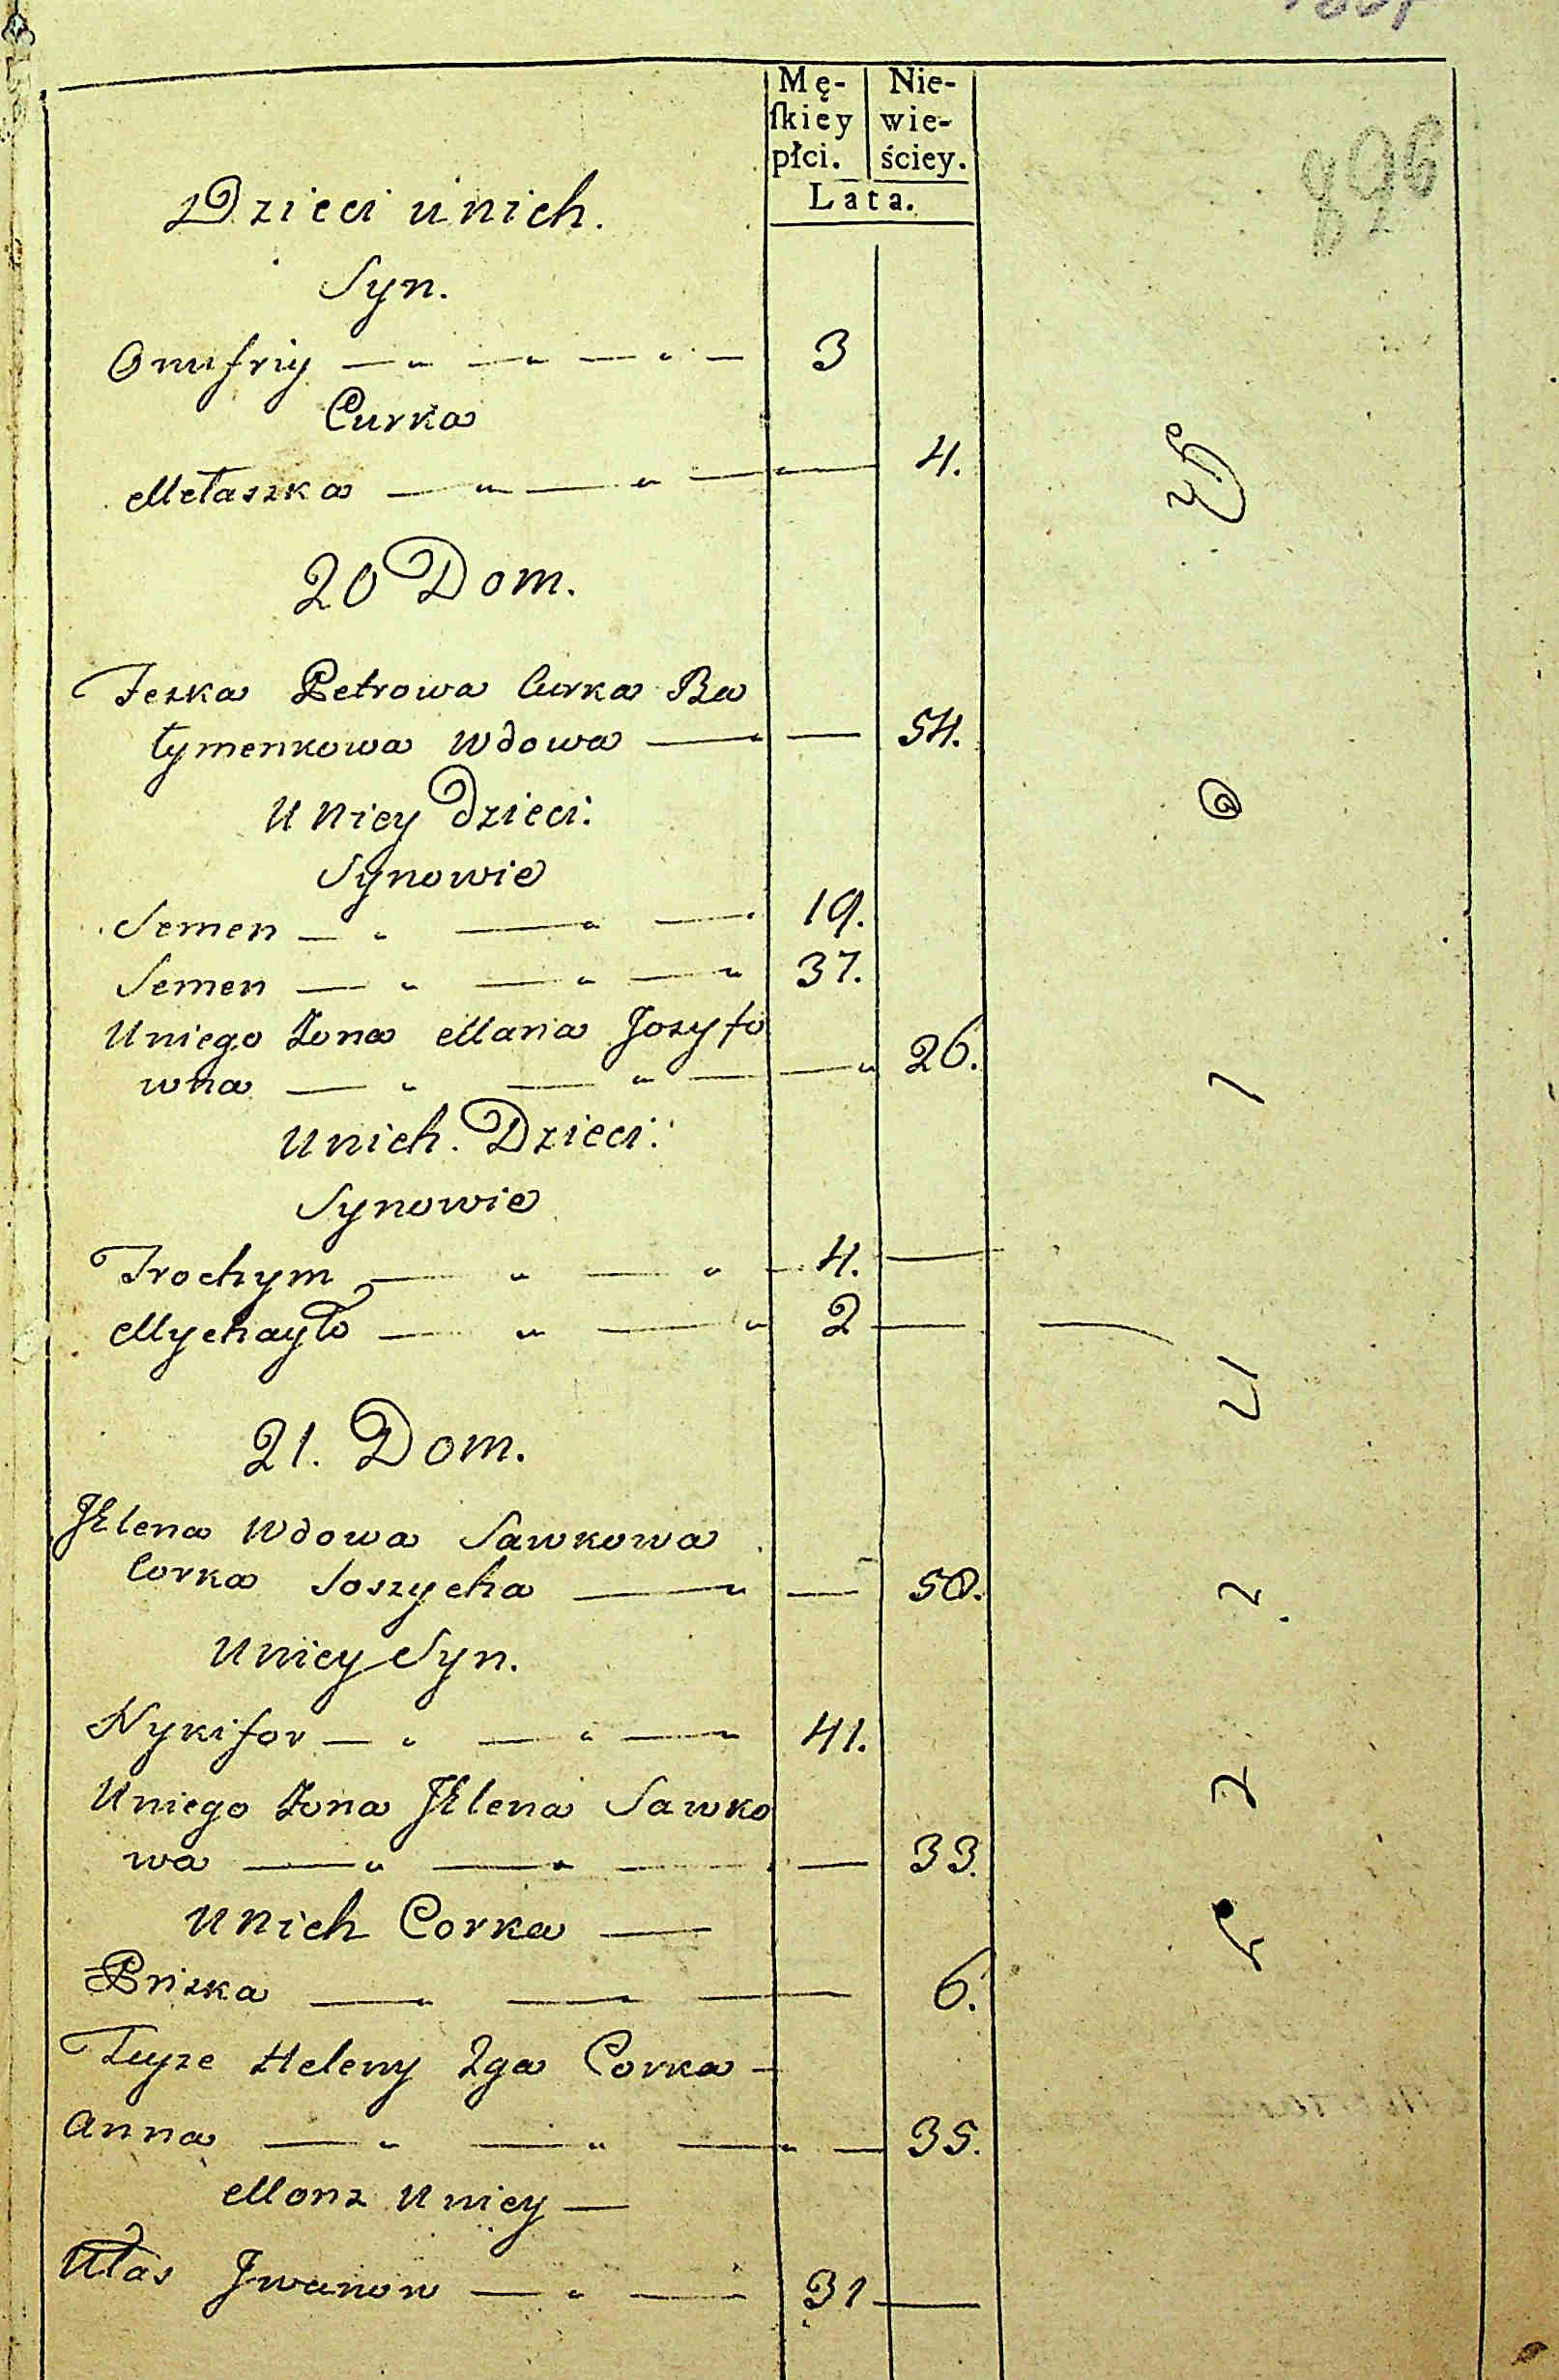 Mę- Nie-
ſkiey wie-
płci. ściey.
Lata.
Dzieci u nich.
Syn.
Onufriy 3
Curka
Mełaszka 4.
20 Dom.
Petrowa Curka Ba
łymenkowa Wdowa 54.
U Niey Dzieci:
Synowie
Semen 19.
Semen 37.
Uniego Żona Maria Jozyfo
wna 26.
Unich Dzieci:
Synowie
Trochym 4.
Mychayło 2
21. Dom.
Wdowa Sawkowa
Corka Soszycha 50.
Uniey Syn.
Nykifor 41.
Uniego Żona Sawko
wa 33.
Unich Corka
Priska 6.
Teyże Heleny 2ga Corka
Anna 35.
Monz Uniey
Ułas Jwanow 31